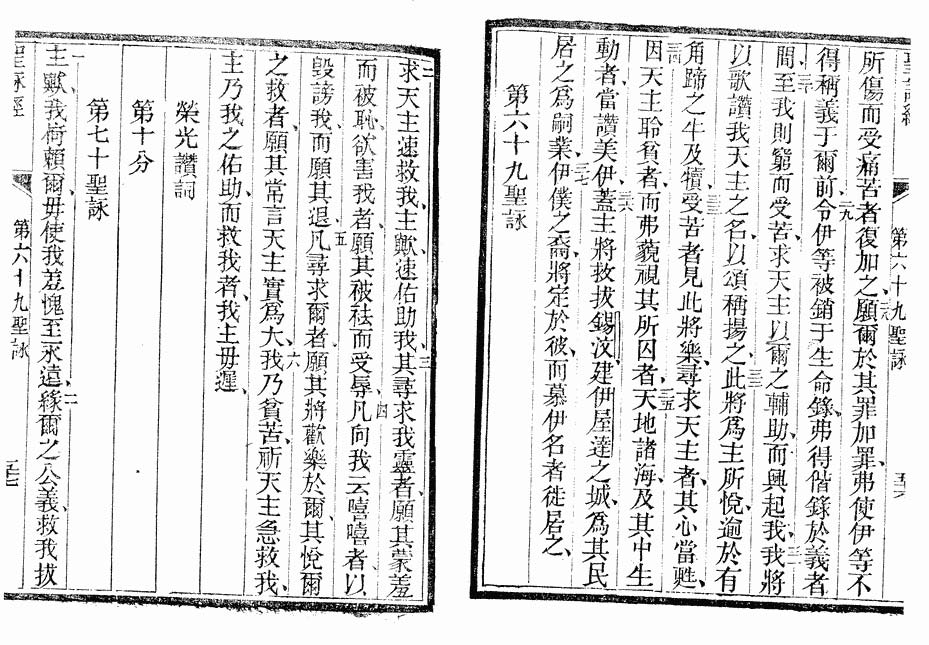 第六十九聖詠
五六
所傷而受痛苦者復加之、二八願爾於其罪加罪、弗使伊等不
得稱義于爾前、二九令伊等被銷于生命錄、弗得偕錄於義者
間、三十至我則窮而受苦、求天主以爾之輔助而興起我、三一我將
以歌讚我天主之名、以頌稱揚之、三二此將爲主所悅、逾於有
角蹄之牛及犢、三三受苦者見此將樂、尋求天主者、其心當甦、
三四因天主聆貧者、而弗藐視其所囚者、三五天地諸海、及其中生
動者、當讚美伊、三六蓋主將救拔錫汶、建伊屋達之城、爲其民
居之爲嗣業、三七伊僕之裔、將定於彼、而慕伊名者徙居之、
第六十九聖詠
二求天主速救我、主歟速佑助我、三其尋求我靈者、願其蒙羞
而被恥、欲害我者、願其被袪而受辱、四凡向我云嘻嘻者、以
毀謗我、而願其退、五凡尋求爾者、願其將歡樂於爾、其悅爾
之救者、願其常言天主實爲大、六我乃貧苦、祈天主急救我、
主乃我之佑助、而救我者、我主毋遲、
榮光讚詞
第十分
第七十聖詠
一主歟、我倚賴爾、毋使我羞愧至永遠、二緣爾之公義、救我拔
聖詠經
第六十九聖詠
五七